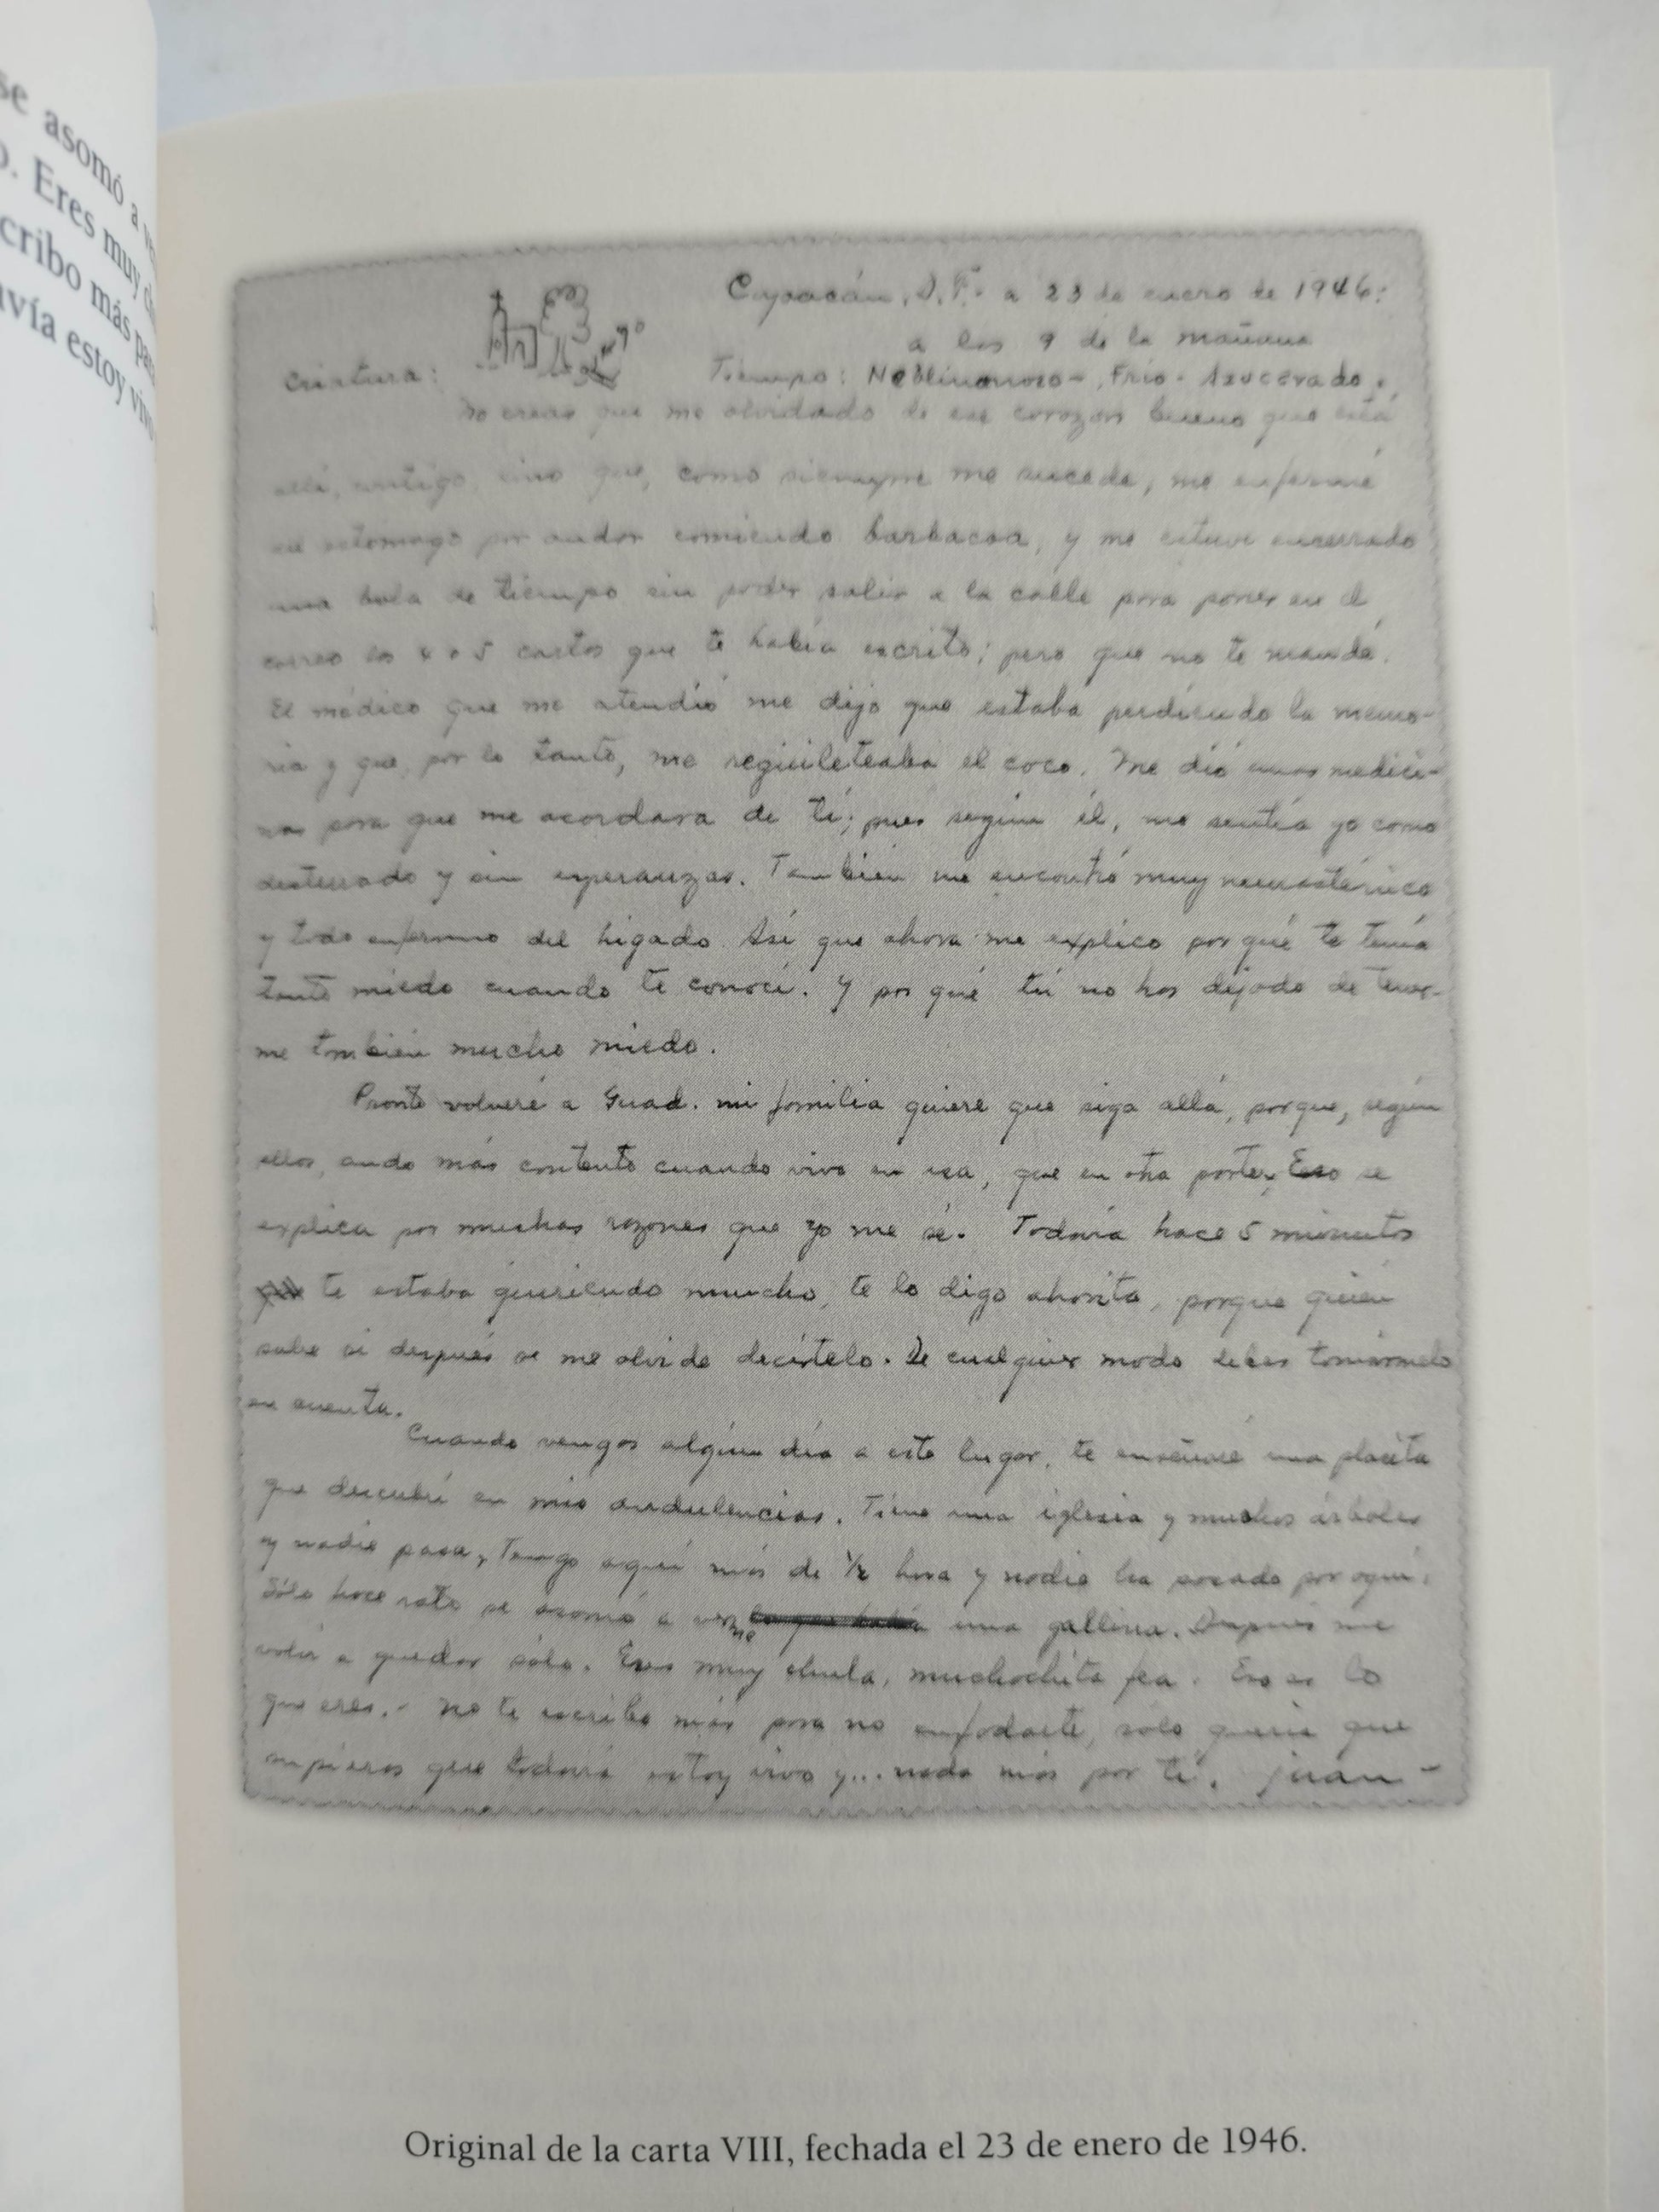 se asomó a
o. Eres muy
cribo más para
vía estoy vivo
Coyoacán, D.F. a 23 de enero de 1946.
a las 9 de la mañana
Criatura:
Tiempo: Neblinonoso-, Frío- Azucarado.
No creas que me olvidado de ese corazón bueno que está
allí, contigo, sino que, como siempre me sucede, me enfermé
del estómago por andar comiendo barbacoa, y me estuve encerrado
una bola de tiempo sin poder salir a la calle para poner en el
correo las 4 o 5 cartas que te había escrito; pero que no te mandé.
El médico que me atendió me dijo que estaba perdiendo la memo-
ria y que, por lo tanto, me reguileteaba el coco. Me dió unas medici-
nas para que me acordara de tí; pues según él, me sentía yo como
desterrado y sin esperanzas. También me encontró muy neurasténico
y todo enfermo del hígado. Así que ahora me explico por qué te tenía
tanto miedo cuando te conocí. Y por qué tú no has dejado de tener-
me también mucho miedo.
Pronto volveré a Guad. mi familia quiere que siga allá, porque, según
ellos, ando más contento cuando vivo en esa, que en otra parte. Eso se
explica por muchas razones que yo me sé. Todavía hace 5 minutos
te estaba queriendo mucho, te lo digo ahorita, porque quién
sabe si después se me olvide decírtelo. De cualquier modo debes tomármelo
en cuenta.
Cuando vengas algún día a este lugar, te enseñaré una placita
que descubrí en mis andulencias. Tiene una iglesia y muchos árboles
y nadie pasa, Tengo aquí más de 1/2 hora y nadie ha pasado por aquí.
Sólo hace rato se asomó a verme una gallina. Después me
volví a quedar sólo. Eres muy chula, muchachita fea. Eso es lo
que eres.- No te escribo más para no enfadarte, sólo quería que
supieras que todavía estoy vivo y... nada más por tí. Juan-
Original de la carta VIII, fechada el 23 de enero de 1946.